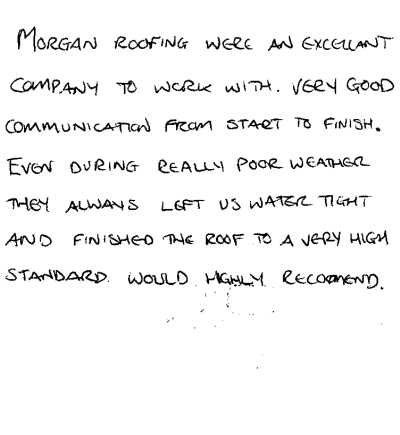 MORGAN ROOFING WERE AN EXCELLANT
COMPANY TO WORK WITH. VERY GOOD
COMMUNICATION FROM START TO FINISH.
EVEN DURING REALLY POOR WEATHER
THEY ALWAYS LEFT US WATER TIGHT
AND FINISHED THE ROOF TO A VERY HIGH
STANDARD. WOULD HIGHLY RECOMMEND.